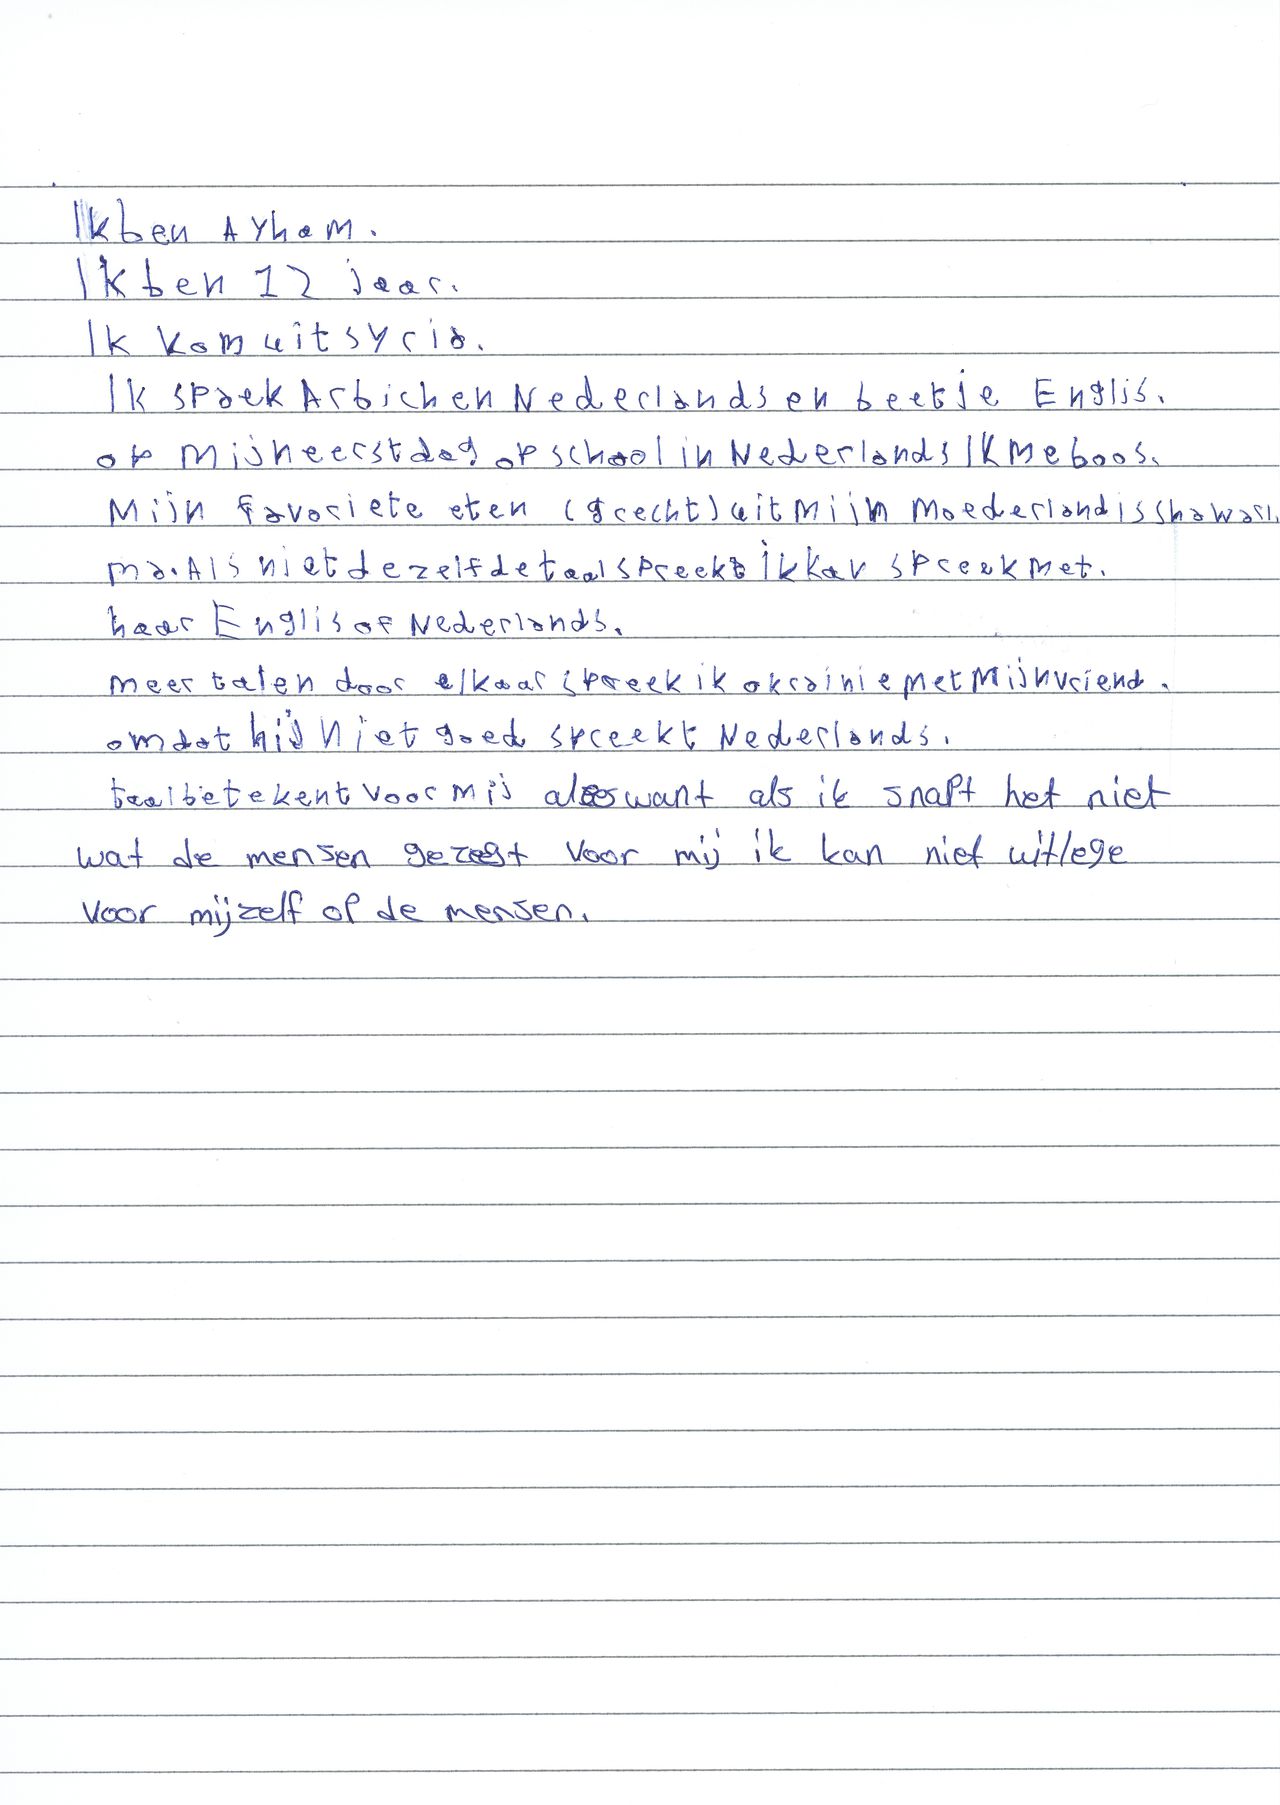 Ik ben Ayham.
Ik ben 12 jaar.
Ik kom uit syria.
Ik spaek Arbich en Nederlands en beetje Englis.
op mijn eerst dag op school in Nederlands Ik me boos.
Mijn favoriete eten (grecht) uit mijn moederland is shawar
ma. Als niet de zelfde taal spreekt ik kan spreek met.
haar Englis of Nederlands.
meer talen door elkaar spreek ik okrainie met mijn vriend.
omdat hij niet goed spreekt Nederlands.
taal betekent voor mij alles want als ik snapt het niet
wat de mensen gezegt voor mij ik kan niet uitlege
voor mijzelf of de mensen.